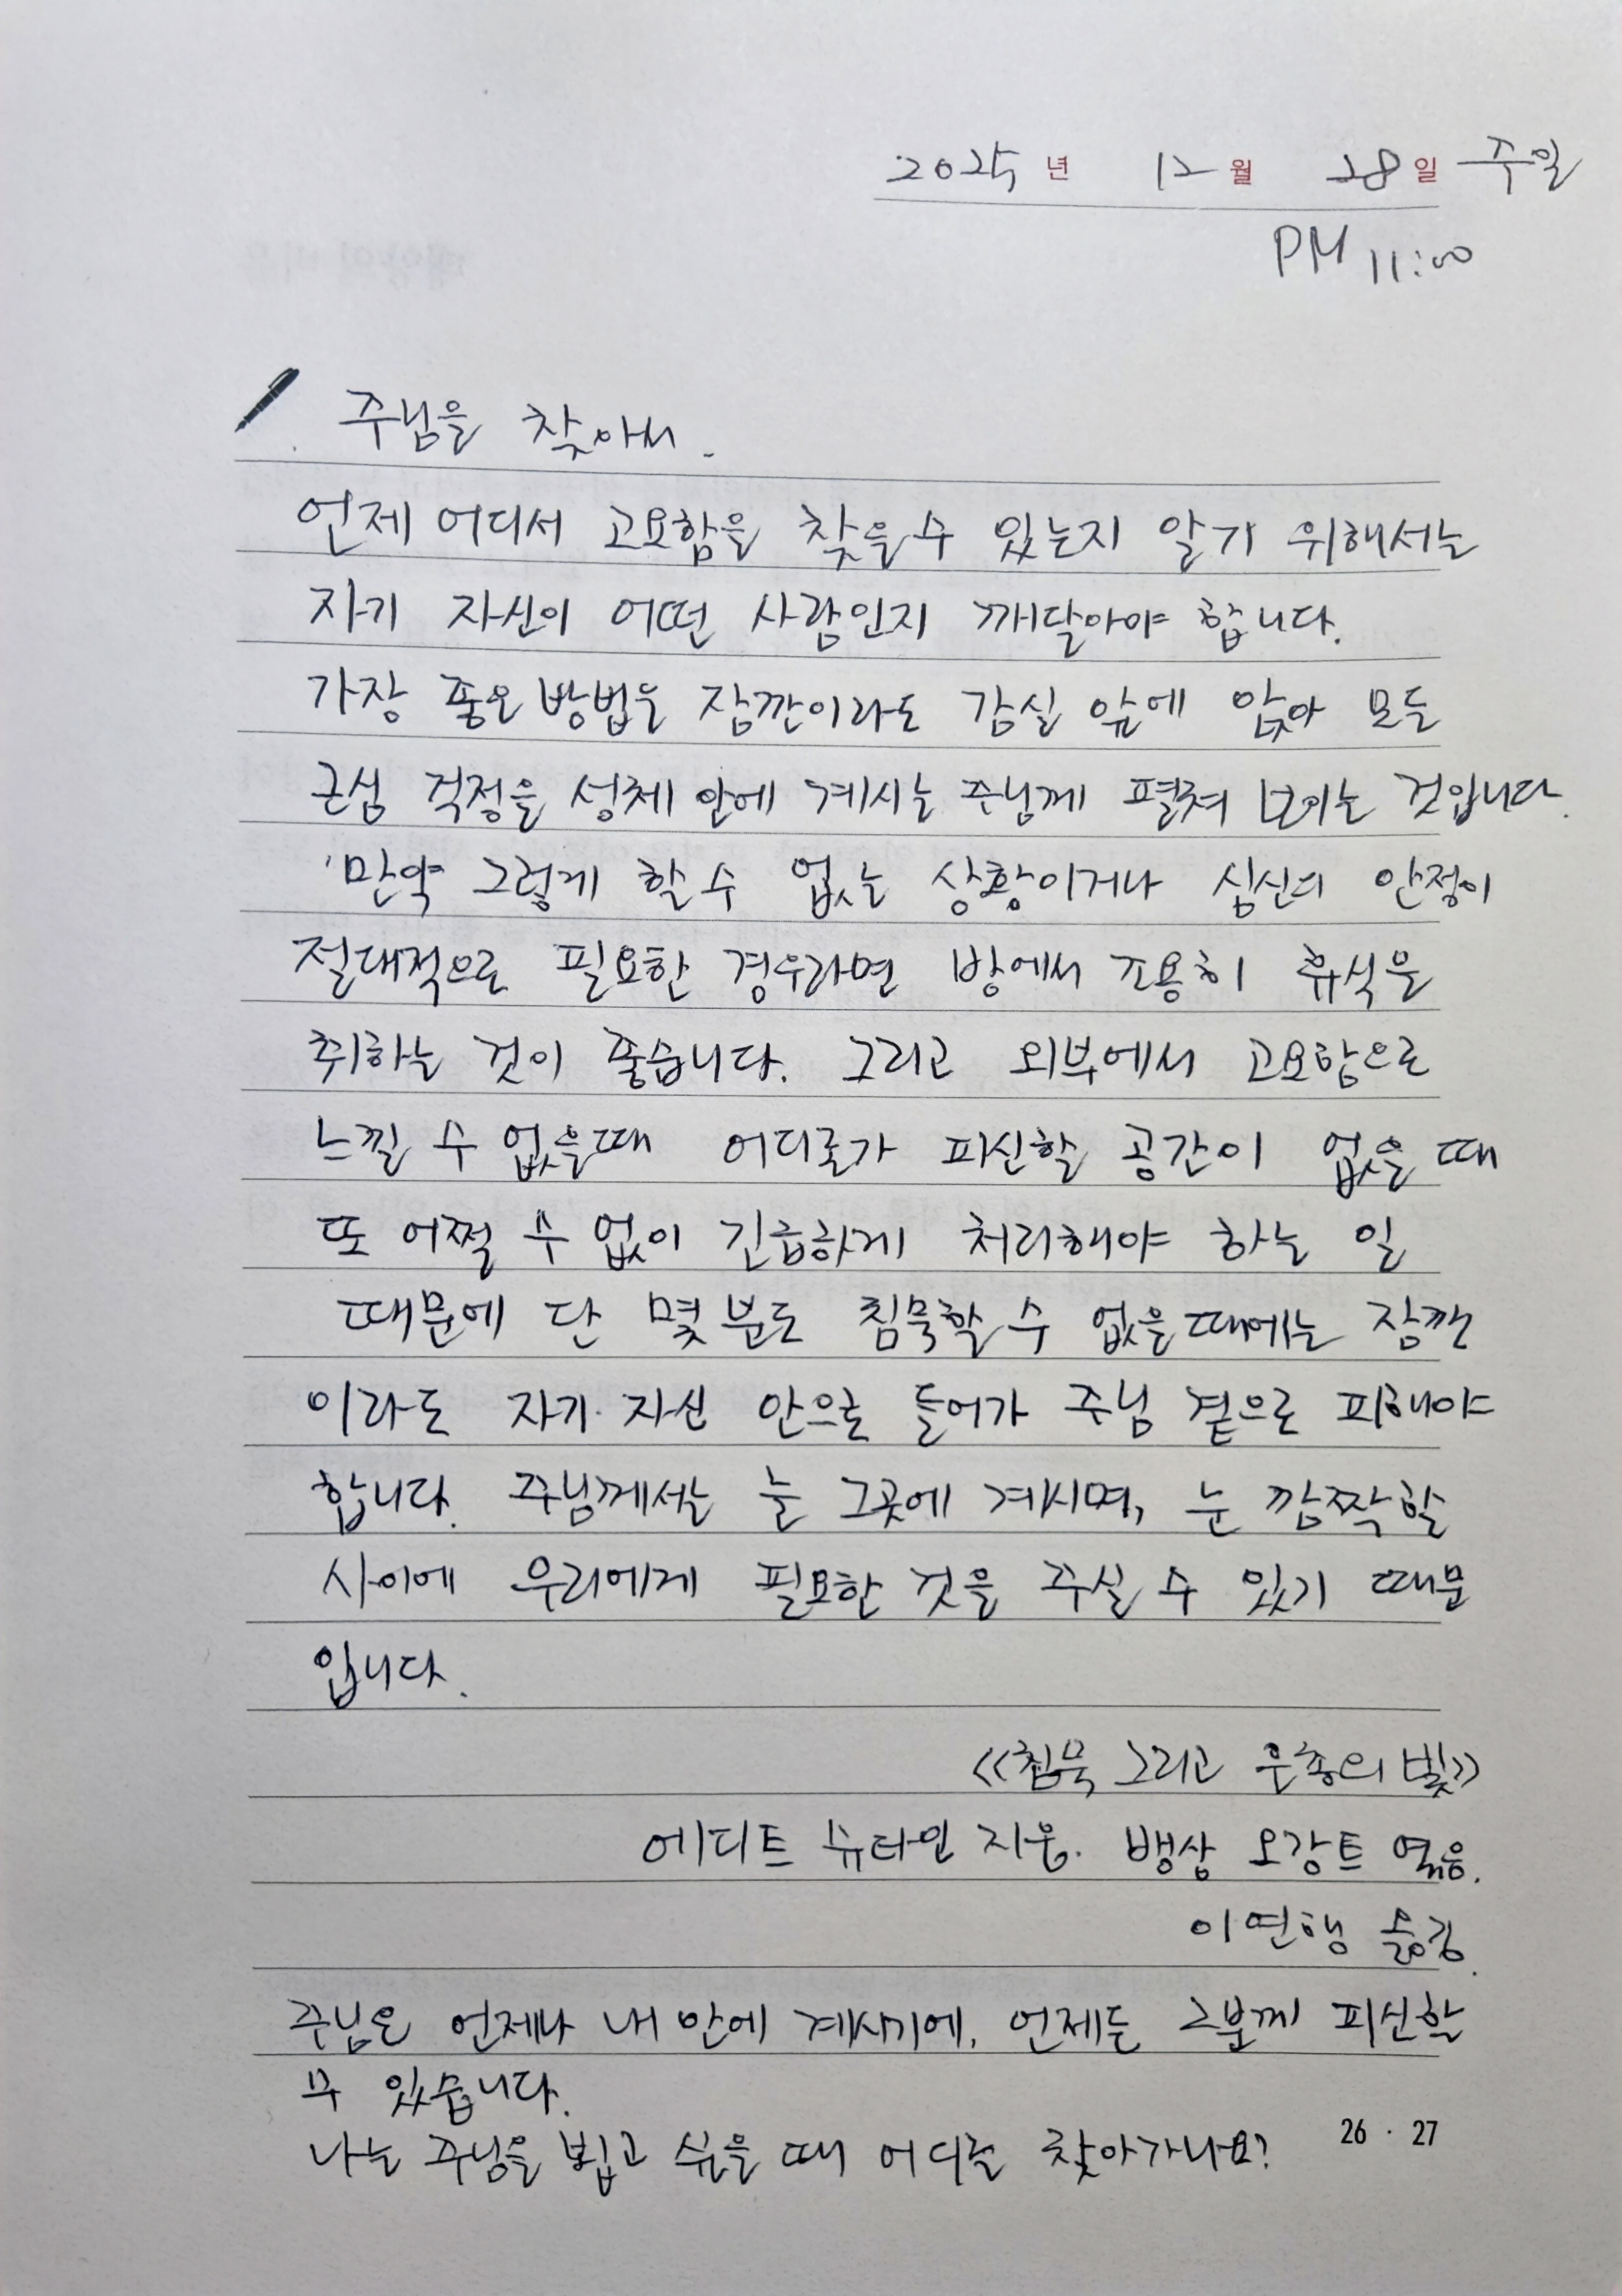 2025년 12월 28일 주일
PM 11:00
주님을 찾아서.
언제 어디서 고요함을 찾을 수 있는지 알기 위해서는
자기 자신이 어떤 사람인지 깨달아야 합니다.
가장 좋은 방법은 잠깐이라도 감실 앞에 앉아 모든
근심 걱정을 성체 안에 계시는 주님께 펼쳐 보이는 것입니다.
만약 그렇게 할 수 없는 상황이거나 심신의 안정이
절대적으로 필요한 경우라면 방에서 조용히 휴식을
취하는 것이 좋습니다. 그리고 외부에서 고요함으로
느낄 수 없을 때 어디로가 피신할 공간이 없을 때
또 어쩔 수 없이 긴급하게 처리해야 하는 일
때문에 단 몇 분도 침묵할 수 없을 때에는 잠깐
이라도 자기 자신 안으로 들어가 주님 곁으로 피해야
합니다. 주님께서는 늘 그곳에 계시며, 눈 깜짝할
사이에 우리에게 필요한 것을 주실 수 있기 때문
입니다.
<<침묵 그리고 은총의 빛>>
에디트 슈타인 지음. 뱅상 오캉트 엮음.
이연행 옮김.
주님은 언제나 내 안에 계시기에, 언제든 그분께 피신할
수 있습니다.
나는 주님을 뵙고 싶을 때 어디를 찾아가나요?
26 · 27